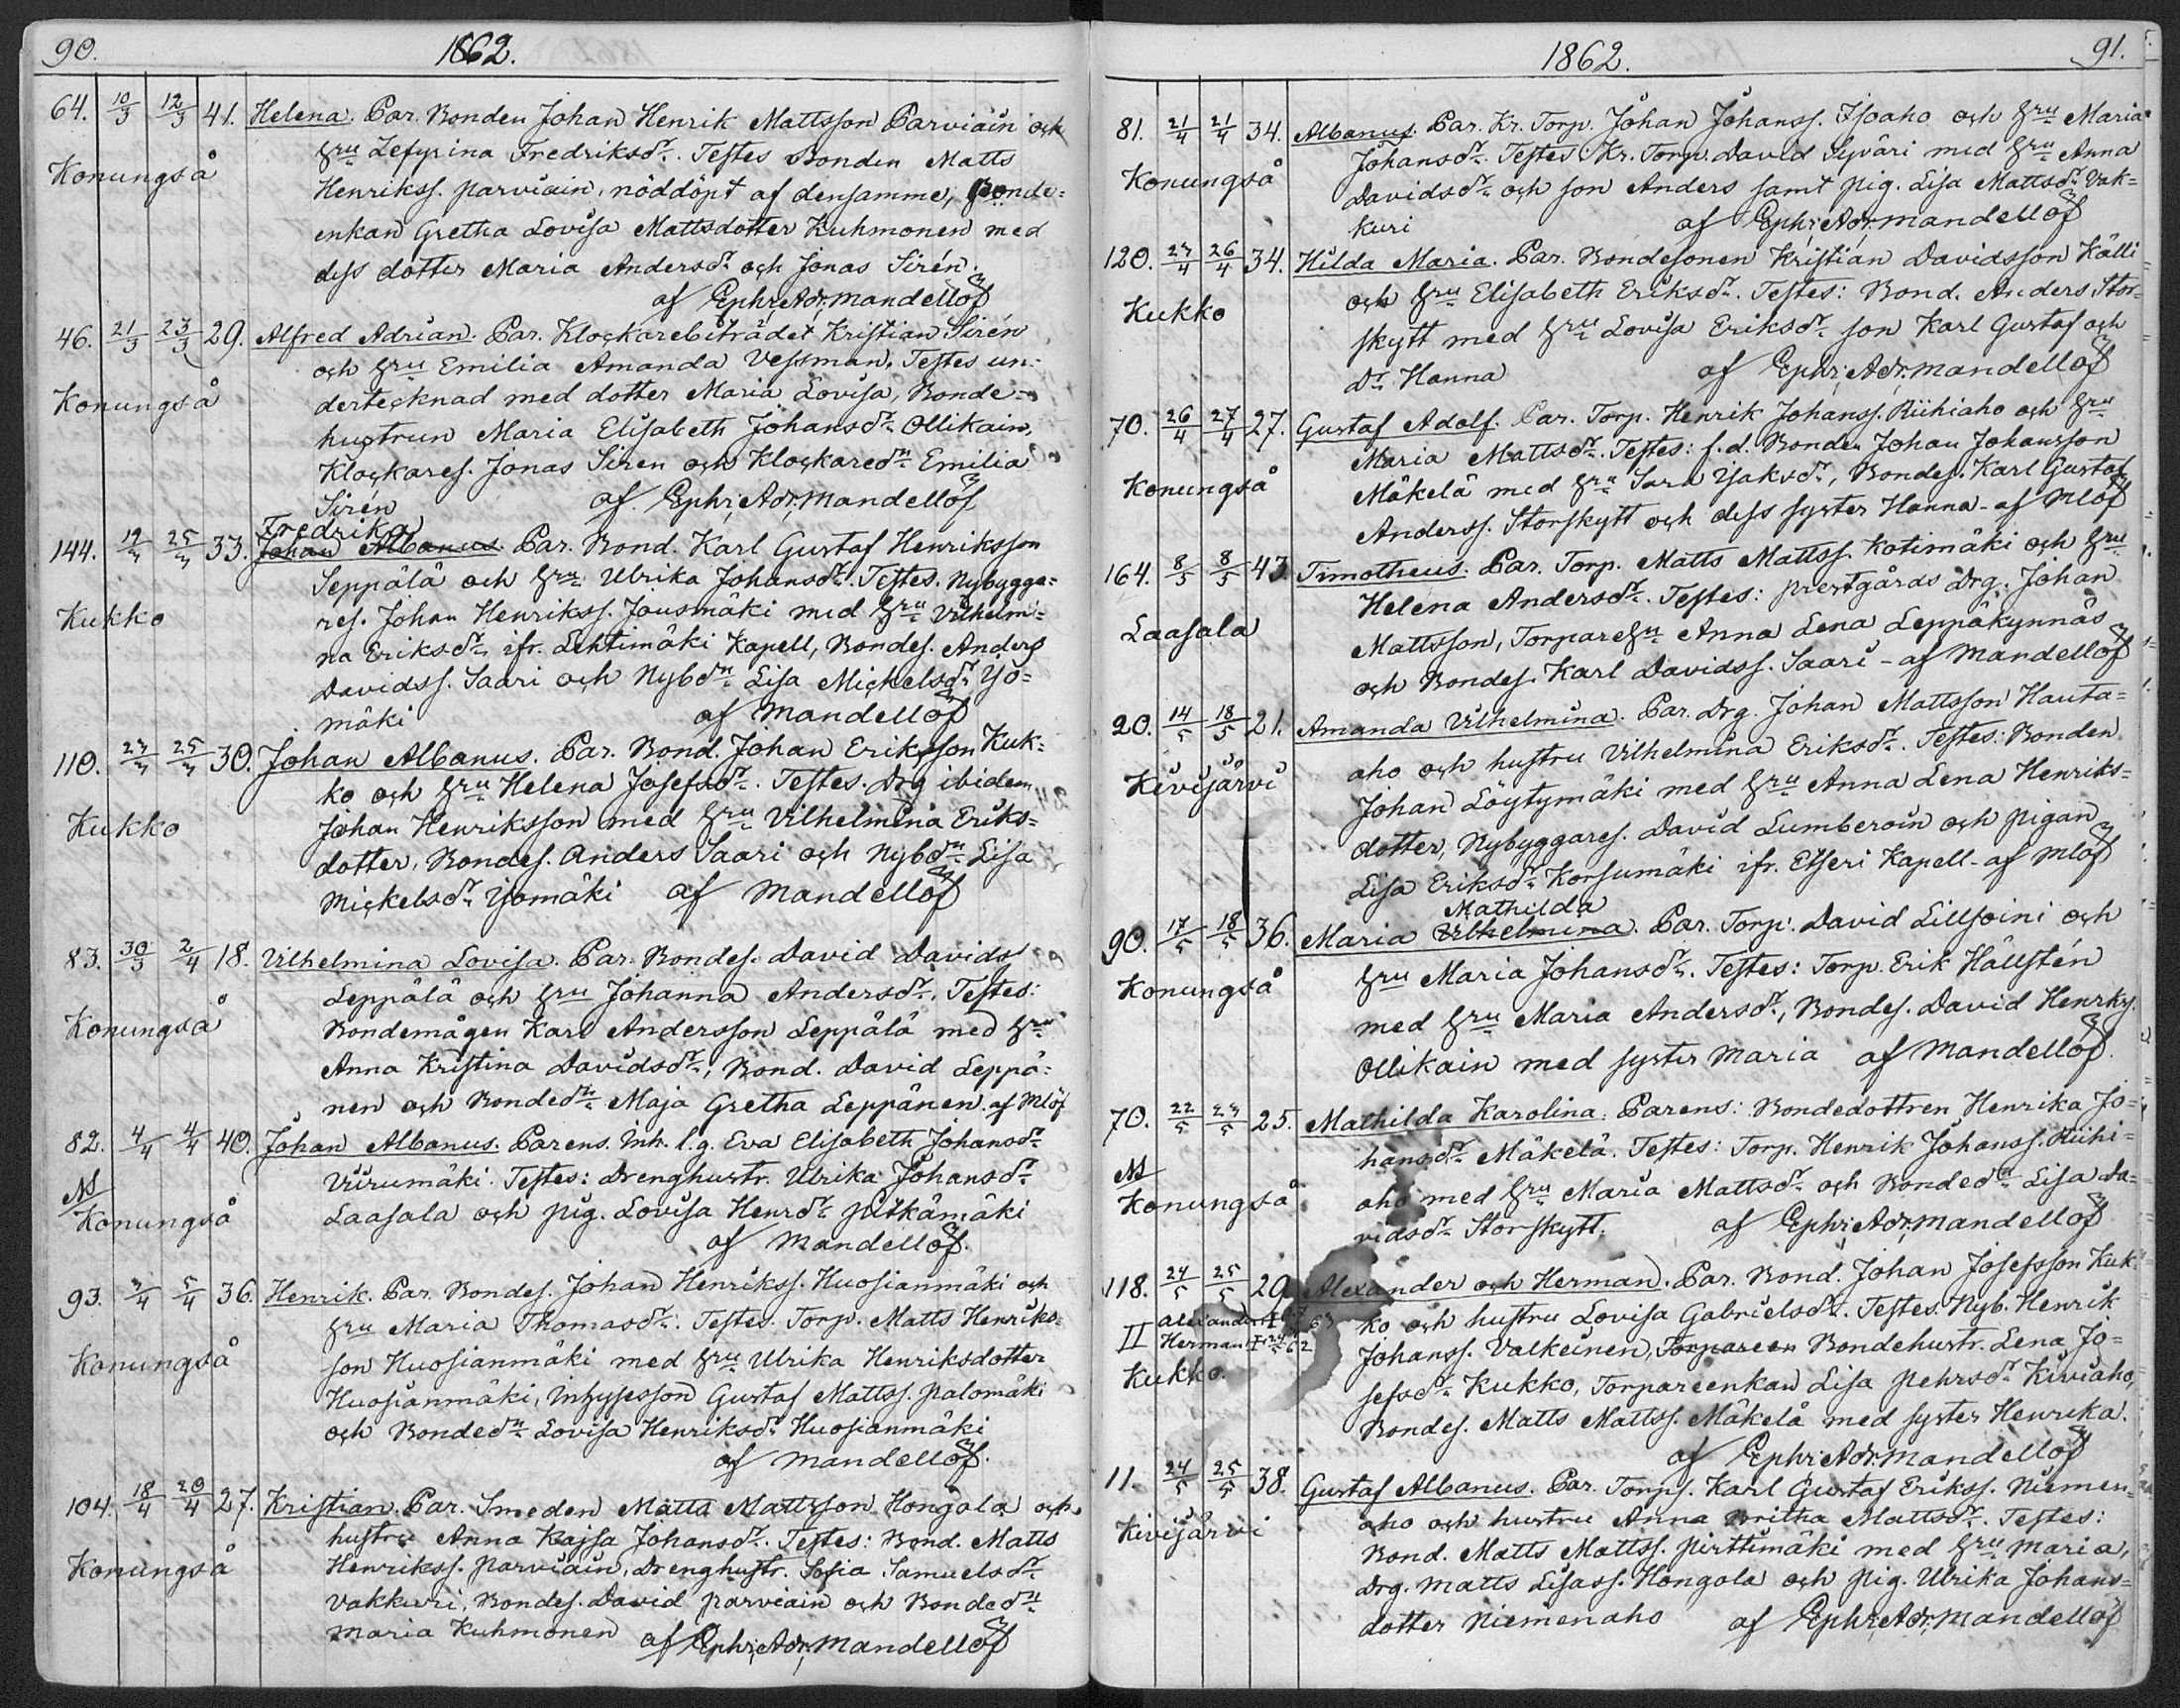 90.
1862.
64. 10/3 12/3 41. Helena. Par. Bonden Johan Henrik Mattsson Parviain och
hru Zefyrina Fredriksdr. Testes Bonden Matts
Konungså
Henrikss. Parviain, nöddöpt af densamme, Bonde=
enkan Gretha Lovisa Mattsdotter Kuhmonen med
dess dotter Maria Andersdr och Jonas Sirén.
af Ephr; Adr; Mandellöf
46. 21/3 23/3 29. Alfred Adrian. Par. Klockarebiträdet Kristian Sirén
och hru Emilia Amanda Vessman. Testes un=
Konungså
derteçknad med dotter Maria Lovisa, Bonde=
hustrun Maria Elisabeth Johansdr Ollikain,
Klockares. Jonas Siren och Klockaredn Emilia
Sirén af. Ephr; Adr; Mandellöf
Fredrika
144. 19/3 25/3 33. Johan Albanus. Par. Bond. Karl Gustaf Henriksson
Seppälä och hru Ulrika Johansdr. Testes. Nybygga=
Kukko
res. Johan Henrikss. Jousmäki med hru Vilhelmi=
na Eriksdr, ifr. Lehtimäki Kapell, Bondes. Anders
Davidss. Saari och Nybdn Lisa Mickelsdr Yo=
mäki af Mandellöf
110. 23/3 25/3 30. Johan Albanus. Par. Bond. Johan Eriksson Kuk=
ko och hru Helena Josefsdr. Testes. Drg ibidem
Kukko
Johan Henriksson med hru Vilhelmina Eriks=
dotter, Bondes. Anders Saari och Nybdn Lisa
Mickelsdr Yomäki af Mandellöf
83. 30/3 2/4 18. Vilhelmina Lovisa. Par. Bondes. David Davids
Leppälä och hru Johanna Andersdr. Testes:
Konungså
Bondemågen Karl Andersson Leppälä med hru
Anna Kristina Davidsdr, Bond. David Leppä=
nen och Bondedn Maja Gretha Leppänen. af Mlöf
82. 4/4 4/4 40. Johan Albanus. Parens. Inh. l.g. Eva Elisabeth Johansdr
Viirumäki. Testes: Drenghustr. Ulrika Johansdr
Konungså
Laasala och pig. Lovisa Henrdr Pitkämäki
af Mandellöf.
93. 3/4 5/4 36. Henrik. Par. Bondes. Johan Henrikss. Huosianmäki och
hru Maria Thomasdr. Testes Torp. Matts Henriks=
Konungså
son Huosianmäki med hru Ulrika Henriksdotter
Huosianmäki, Inhysesson Gustaf Mattss. Palomäki
och Bondedn Lovisa Henriksdr Huosianmäki
af Mandellöf.
104. 18/4 20/4 27. Kristian. Par. Smeden Matts Mattsson Hongola och
hustru Anna Kajsa Johansdr. Testes: Bond. Matts
Konungså
Henrikss. Parviain, Drenghustr. Sofia Samuelsdr
Vakkuri, Bondes. David Parviain och Bondedn
Maria Kuhmonen af Ephr; Adr; Mandellöf
1862.
91.
81. 21/4 21/4 34. Albanus. Par. Kr. Torp. Johan Johanss. Isoaho och hru Maria
Johansdr. Testes: Kr. Torp. David Syväri med hru Anna
Konungså
Davidsdr och son Anders samt pig. Lisa Mattsdr Vak=
kuri af Ephr; Adr; Mandellöf
120. 23/4 26/4 34. Hilda Maria. Par. Bondesonen Kristian Davidsson Källi
och hru Elisabeth Eriksdr. Testes: Bond. Anders Stor=
Kukko
skytt med hru Lovisa Eriksdr son Karl Gustaf och
dr Hanna af Ephr; Adr; Mandellöf
70. 26/4 27/4 27. Gustaf Adolf. Par. Torp. Henrik Johanss. Riihiaho och hru
Maria Mattsdr. Testes: f.d. Bonden Johan Johansson
Konungså
Mäkelä med hru Sara Isaksdr, Bondes. Karl Gustaf
Anderss. Storskytt och dess syster Hanna - af Mlöf
164. 8/5 8/5 43. Timotheus. Par. Torp. Matts Mattss. Kotimäki och hru
Helena Andersdr. Testes: prestgårds Drg. Johan
Laasala
Mattsson, Torparehu Anna Lena Leppäkynnäs
och Bondes. Karl Davidss. Saari - af Mandellöf
20. 14/5 18/5 21. Amanda Vilhelmina. Par. Drg. Johan Mattsson Hauta=
aho och hustru Vilhelmina Eriksdr. Testes: Bonden
Kivijärvi
Johan Löytymäki med hru Anna Lena Henriks=
dotter, Nybyggares. David Lumberoin och pigan
Lisa Eriksdr Korsumäki ifr. Etseri Kapell - af Mlöf
Mathilda
90. 17/5 18/5 36. Maria Vilhelmina. Par. Torp. David Lillsoini och
hru Maria Johansdr. Testes: Torp. Erik Hällstén
Konungså
med hru Maria Andersdr, Bondes. David Henrks.
Ollikain med syster Maria af Mandellöf.
70. 22/5 23/5 25. Mathilda Karolina. Parens: Bondedottren Henrika Jo=
hansdr Mäkelä. Testes: Torp. Henrik Johanss. Riihi=
Konungså
aho med hru Maria Mattsdr och Bondedn Lisa Da=
vidsdr Storskytt. af Ephr; Adr; Mandellöf
118. 24/5 25/5 29. Alexander och Herman. Par. Bond. Johan Josefsson Kuk=
ko och hustru Lovisa Gabrielsdr. Testes. Nyb. Henrik
II Herman † 24/5 62
Johanss. Valkeinen, Torpareen Bondehustr. Lena Jo=
Kukko.
sefsdr Kukko, Torpareenkan Lisa Pehrsdr Kiviaho,
Bondes. Matts Mattss. Mäkelä med syster Henrika.
af Ephr; Adr; Mandellöf
11. 24/5 25/5 38. Gustaf Albanus. Par. Torps. Karl Gustaf Erikss. Niemen=
aho och hustru Anna Britha Mattsdr. Testes:
Kivijärvi
Bond. Matts Mattss. Pirttimäki med hru Maria,
Drg. Matts Lisass. Hongola och pig. Ulrika Johans=
dotter Niemenaho af Ephr; Adr; Mandellöf